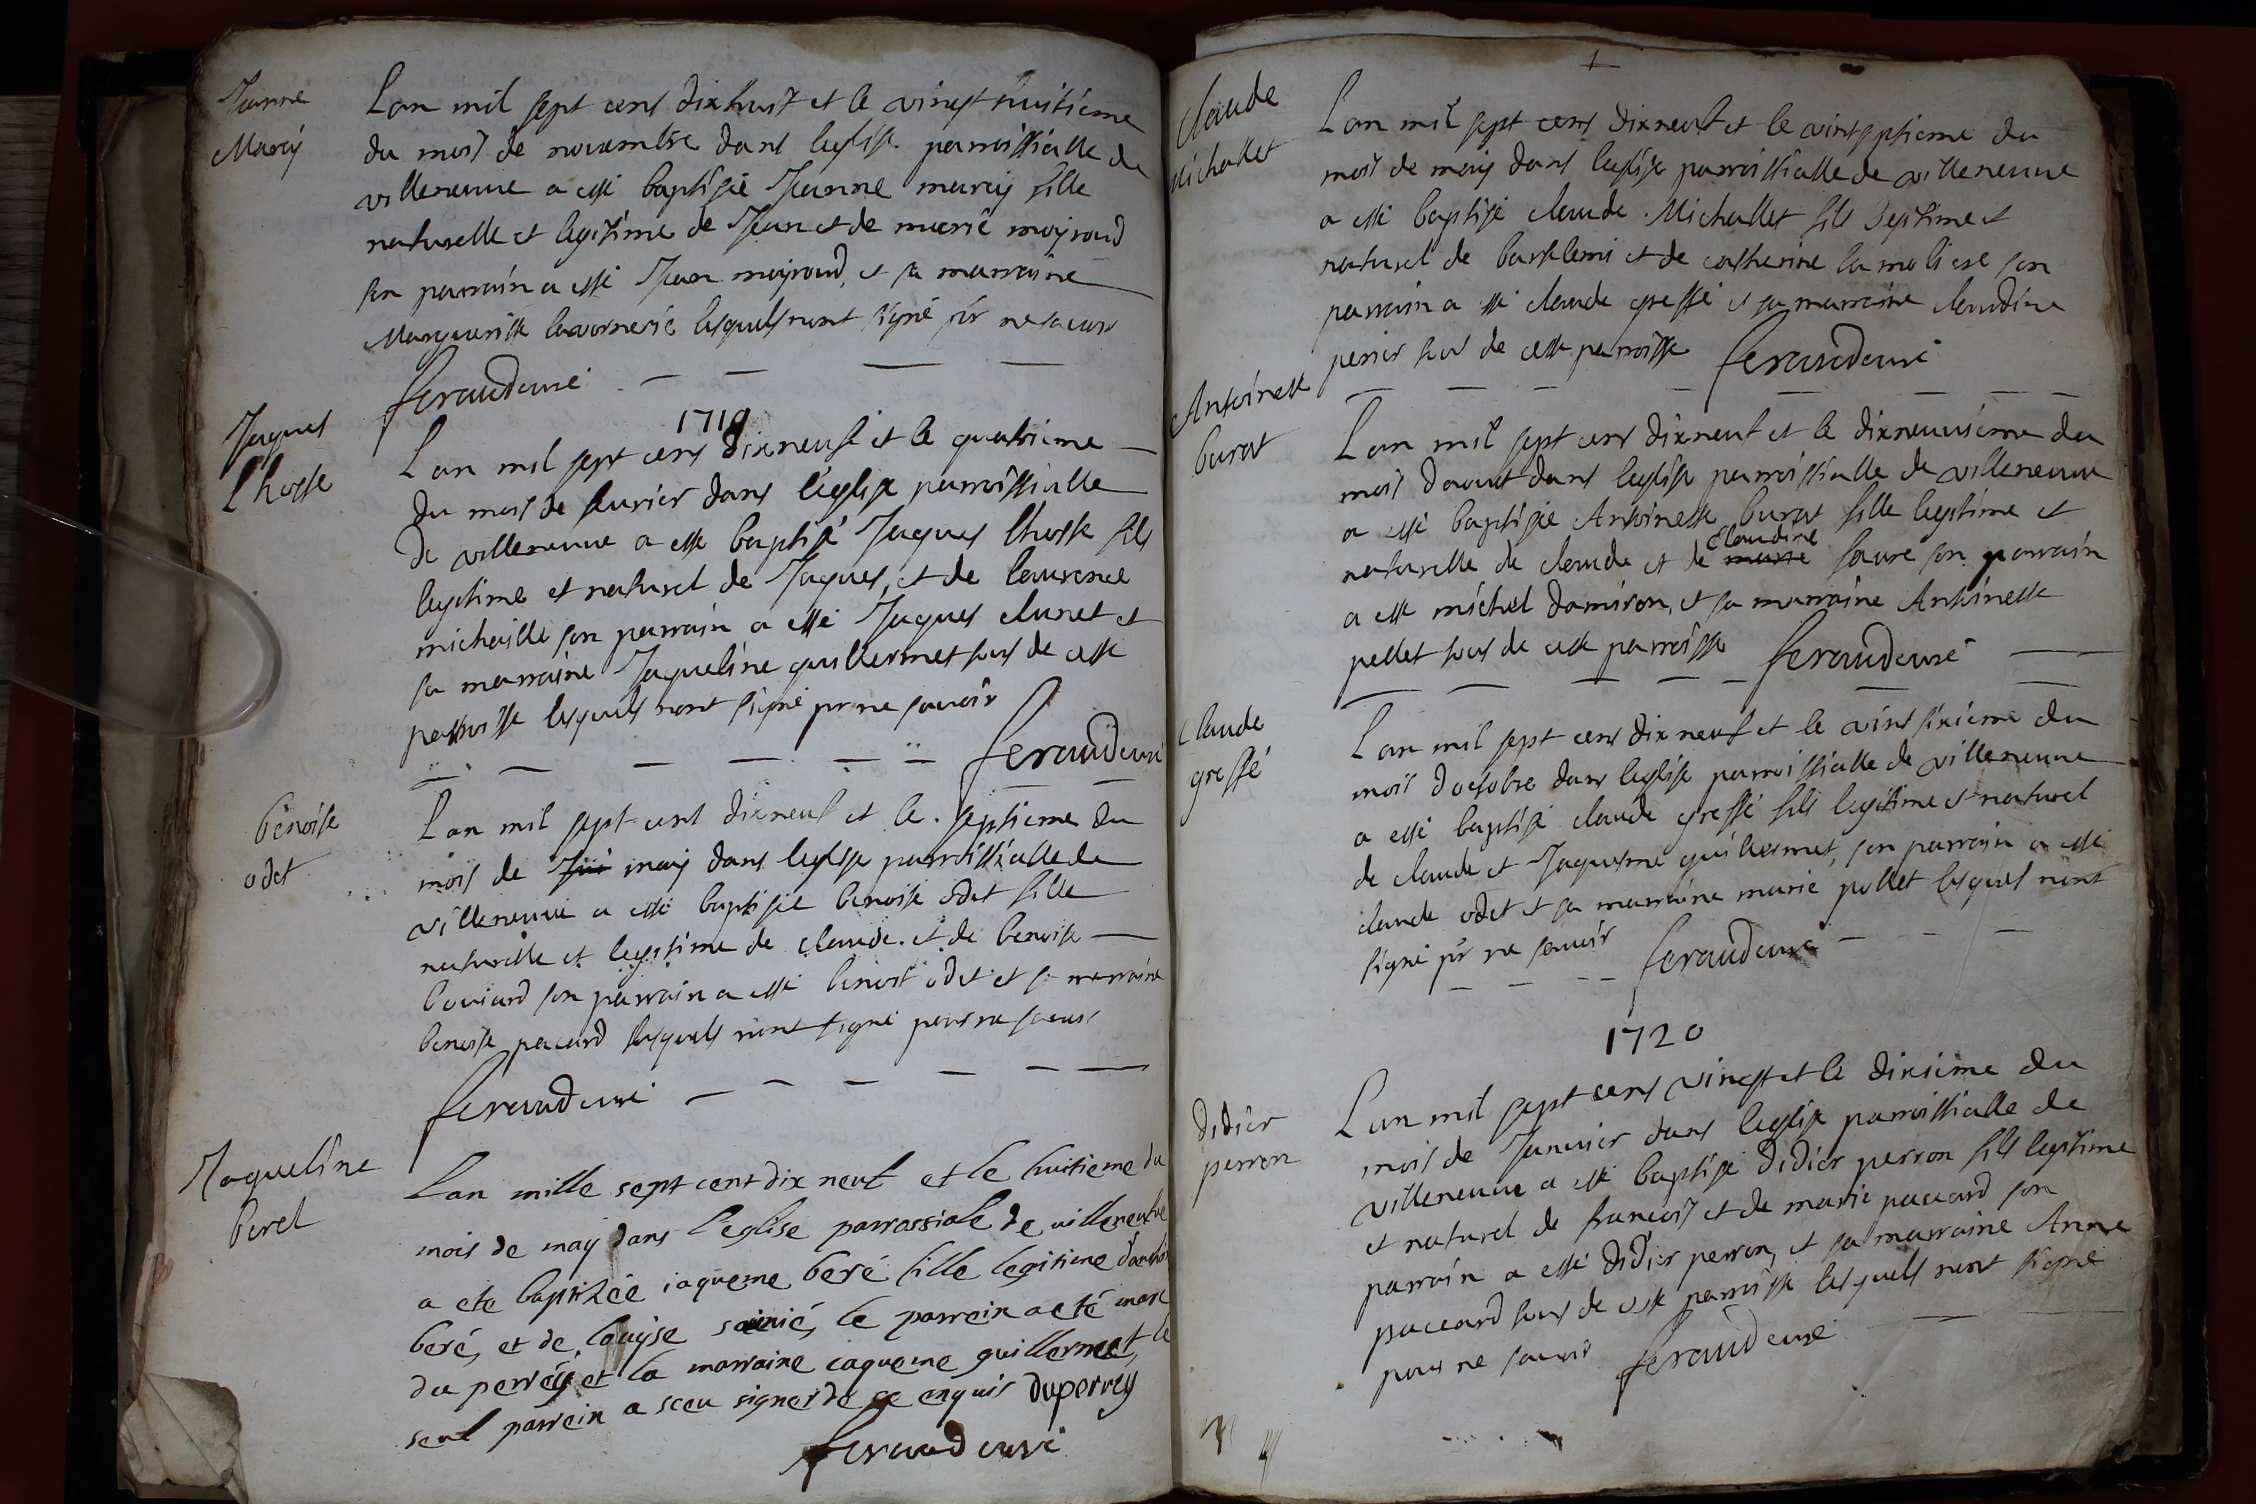 Jeanne
Marcy
Lan mil sept cens dixhuit et le vingt huitieme
du mois de novembre dans leglise parroissialle de
villeneuve a esté baptisée Jeanne marcy fille
naturelle et legitime de Jean et de marie moyroud
son parrain a esté Jean moyroud, et sa marraine
Margueritte lesquels nont signé pr ne savoir
feraud curé
1719
Jaques
lhoste
Lan mil sept cens dixneuf et le quatrieme
du mois de feurier dans l'eglise parroissialle
de villeneuve a esté baptisé Jaques lhoste fils
legitime et naturel de Jaques, et de laurence
michaille son parrain a esté Jaques clunet et
sa marraine Jaqueline guillermet tous de cette
parroisse lesquels nont signé pr ne savoir
feraud curé
benoise
odet
Lan mil sept cent dixneuf et le septieme du
mois de may dans leglise parroissialle de
villeneuve a esté baptisée benoise odet fille
naturelle et legitime de claude et de benoise
bouiard son parrain a esté benoist odet et sa marraine
benoise pacard lesquels nont signé pour ne savoir
feraud curé
Jaqueline
berel
Lan mille sept cent dix neuf et le huitieme du
mois de may dans l'eglise parrossiale de villeneufve
a ete baptizée iaqueme beré fille legitime
beré, et de louyse le parrein a eté marc
du perréÿ et la marraine iaqueme guillermet, le
seul parrein a sceu signer de ce enquis duperrey
feraud curé
claude
michallet
Lan mil sept cens dixneuf et le vintseptieme du
mois de may dans leglise parroissialle de villeneuve
a esté baptisé claude Michallet fils legitime et
naturel de barthlemi et de catherine la moliere son
parrain a esté claude gressé et sa marraine claudine
perrier tous de cette parroisse feraud curé
Antoinette
burat
Lan mil sept cens dixneuf et le dixneuvieme du
mois daout dans leglise parroissialle de villeneuve
a esté baptisée Antoinette burat fille legitime et
claudine
naturelle de claude et de marie faure son parrain
a esté michel damiron, et sa marraine Antoinette
pellet tous de cette parroisse feraud curé
claude
gressé
Lan mil sept cens dixneuf et le vint sixieme du
mois doctobre dans leglise parroissialle de villeneuve
a esté baptisé claude gressé fils legitime et naturel
de claude et Jaquesme guilliermet, son parrain a esté
claude odet et sa marraine marie pollet lesquels nont
signé pr ne savoir feraud curé
1720
didier
perron
Lan mil sept cens vingt et le dixieme du
mois de Janvier dans leglise parroissialle de
villeneuve a esté baptisé didier perron fils legitime
et naturel de francois et de marie paccard son
parrain a esté didier perron, et sa marraine Anne
paccard tous de cette parroisse lesquels nont signé
pour ne savoir feraud curé